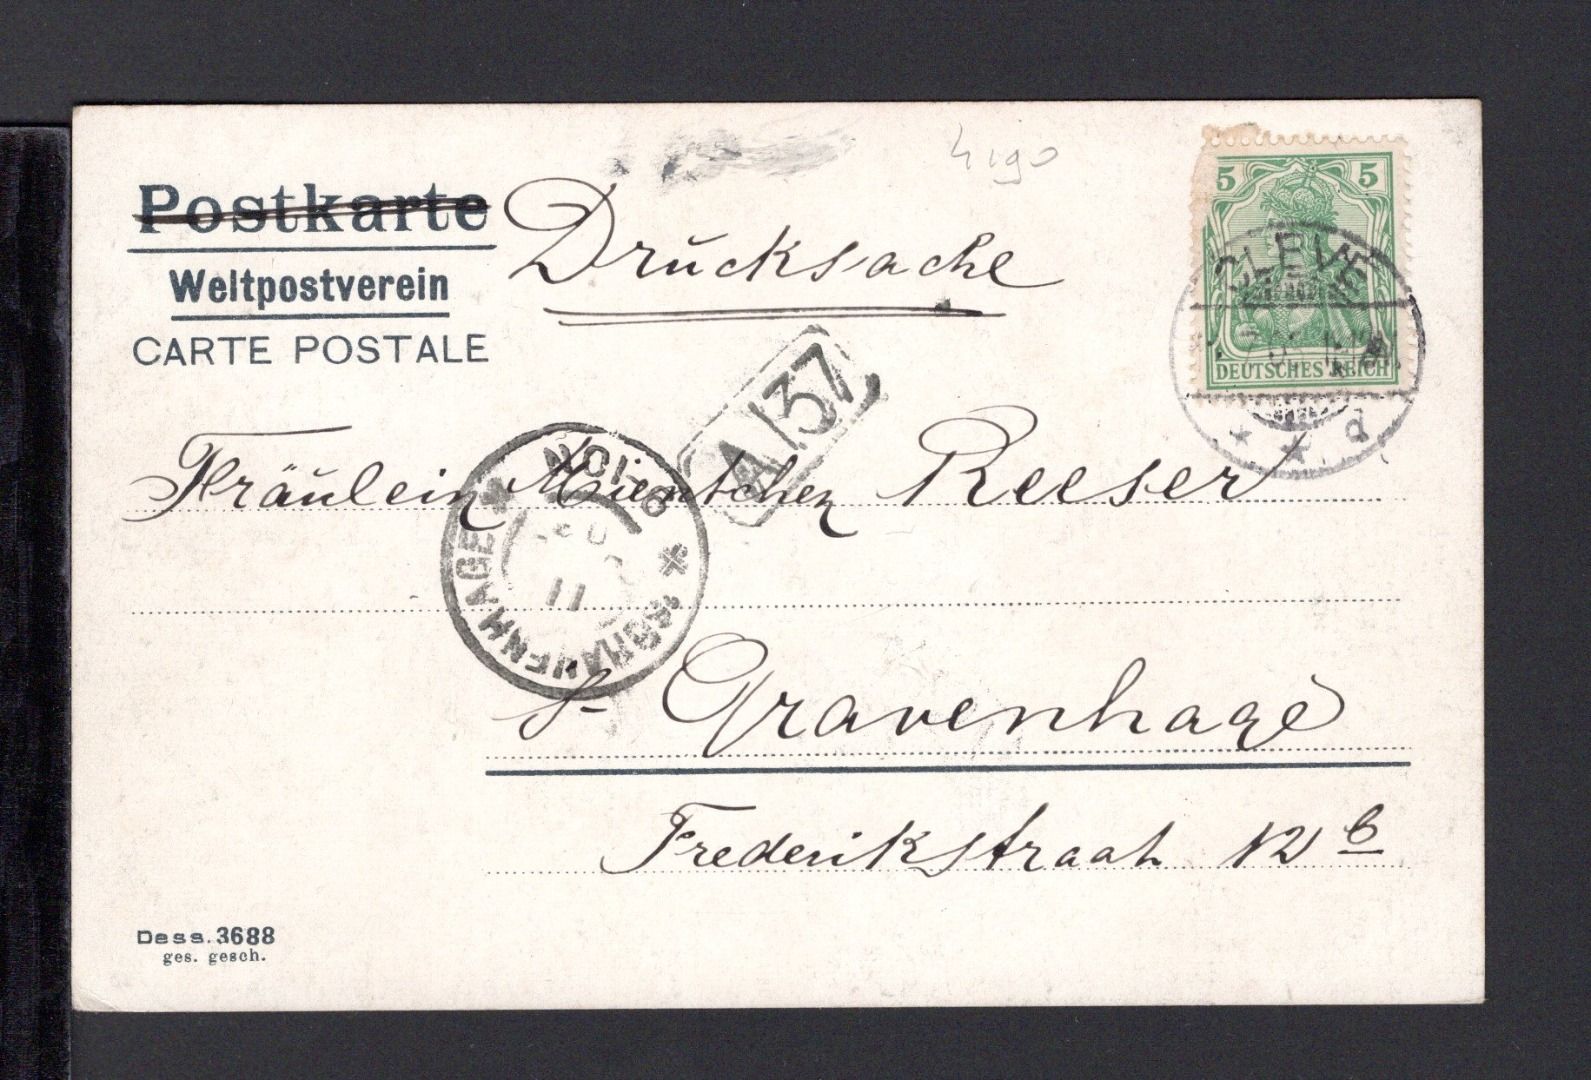 Postkarte
Drucksache
Weltpostverein
CARTE POSTALE
5 5
DEUTSCHES REICH
CLEVE
d
A137
Fräulein Mientchen Reeser
'SGRAVENHAGE
11
s- Gravenhage
Frederikstraat 12 b
Dess. 3688
ges. gesch.